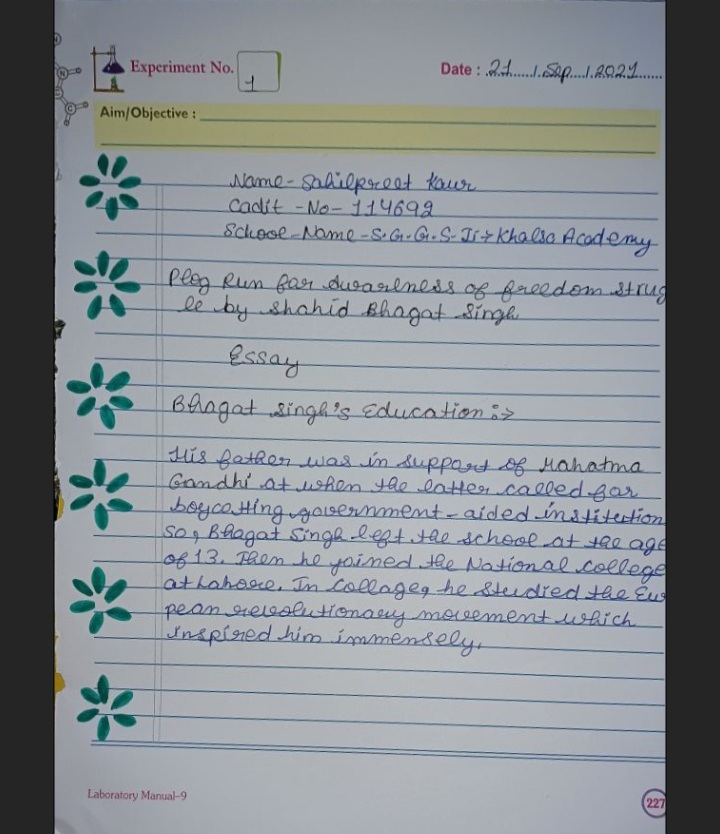 Experiment No. 1
Date : 21 / Sep / 2021
Aim/Objective :
Name - Sahilpreet Kaur
Cadit - No - 114692
School - Name - S.G.G.S - Khalsa Academy
Plog Run for awareness of freedom strug
le by shahid Bhagat Singh
Essay
Bhagat Singh's Education :->
His father was in support of Mahatma
Gandhi at when the latter called for
boycotting government - aided institution
So, Bhagat Singh left the school at the age
of 13. Then he joined the National College
at Lahore. In Collage, he studied the Eur
pean revolutionary movement which
inspired him immensely.
Laboratory Manual-9
227